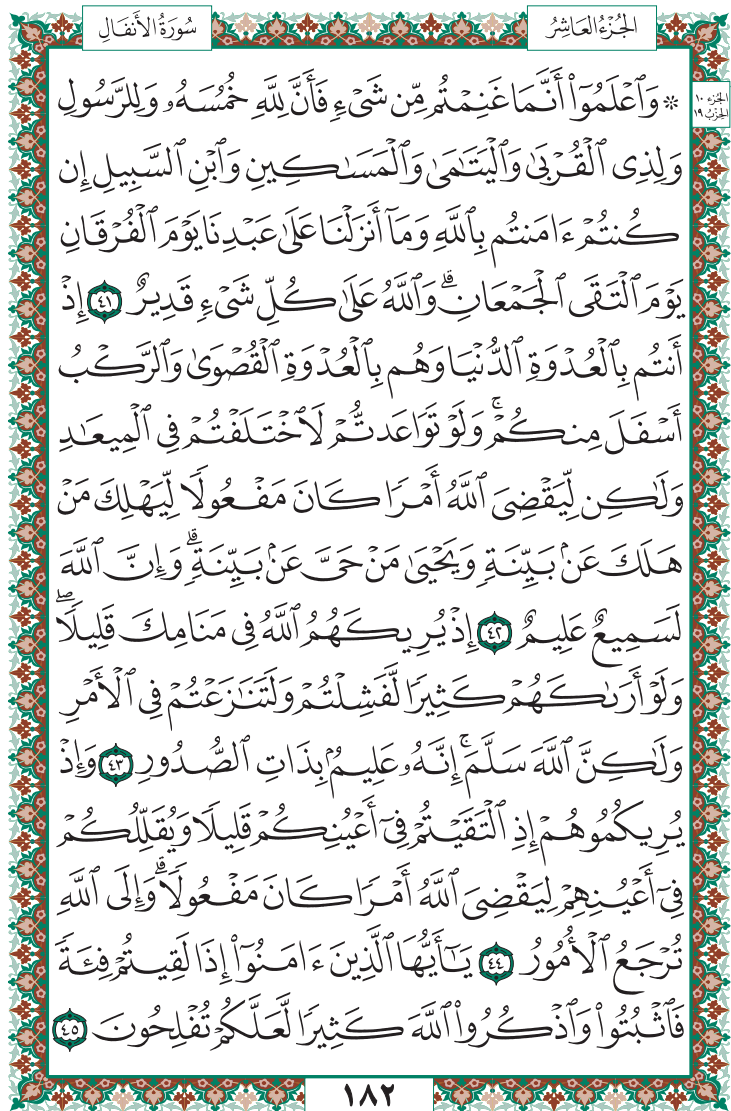 الجُزْءُ العَاشِرُ
سُورَةُ الأَنفَالِ
الجُزء ١٠
الحِزْب ١٩
۞ وَٱعْلَمُوٓا۟ أَنَّمَا غَنِمْتُم مِّن شَىْءٍ فَأَنَّ لِلَّهِ خُمُسَهُۥ وَلِلرَّسُولِ
وَلِذِى ٱلْقُرْبَىٰ وَٱلْيَتَـٰمَىٰ وَٱلْمَسَـٰكِينِ وَٱبْنِ ٱلسَّبِيلِ إِن
كُنتُمْ ءَامَنتُم بِٱللَّهِ وَمَآ أَنزَلْنَا عَلَىٰ عَبْدِنَا يَوْمَ ٱلْفُرْقَانِ
يَوْمَ ٱلْتَقَى ٱلْجَمْعَانِ ۗ وَٱللَّهُ عَلَىٰ كُلِّ شَىْءٍ قَدِيرٌ ٤١ إِذْ
أَنتُم بِٱلْعُدْوَةِ ٱلدُّنْيَا وَهُم بِٱلْعُدْوَةِ ٱلْقُصْوَىٰ وَٱلرَّكْبُ
أَسْفَلَ مِنكُمْ ۚ وَلَوْ تَوَاعَدتُّمْ لَٱخْتَلَفْتُمْ فِى ٱلْمِيعَـٰدِ
وَلَـٰكِن لِّيَقْضِىَ ٱللَّهُ أَمْرًا كَانَ مَفْعُولًا لِّيَهْلِكَ مَنْ
هَلَكَ عَنۢ بَيِّنَةٍ وَيَحْيَىٰ مَنْ حَىَّ عَنۢ بَيِّنَةٍ ۗ وَإِنَّ ٱللَّهَ
لَسَمِيعٌ عَلِيمٌ ٤٢ إِذْ يُرِيكَهُمُ ٱللَّهُ فِى مَنَامِكَ قَلِيلًا ۖ
وَلَوْ أَرَىٰكَهُمْ كَثِيرًا لَّفَشِلْتُمْ وَلَتَنَـٰزَعْتُمْ فِى ٱلْأَمْرِ
وَلَـٰكِنَّ ٱللَّهَ سَلَّمَ ۚ إِنَّهُۥ عَلِيمٌۢ بِذَاتِ ٱلصُّدُورِ ٤٣ وَإِذْ
يُرِيكُمُوهُمْ إِذِ ٱلْتَقَيْتُمْ فِىٓ أَعْيُنِكُمْ قَلِيلًا وَيُقَلِّلُكُمْ
فِىٓ أَعْيُنِهِمْ لِيَقْضِىَ ٱللَّهُ أَمْرًا كَانَ مَفْعُولًا ۗ وَإِلَى ٱللَّهِ
تُرْجَعُ ٱلْأُمُورُ ٤٤ يَـٰٓأَيُّهَا ٱلَّذِينَ ءَامَنُوٓا۟ إِذَا لَقِيتُمْ فِئَةً
فَٱثْبُتُوا۟ وَٱذْكُرُوا۟ ٱللَّهَ كَثِيرًا لَّعَلَّكُمْ تُفْلِحُونَ ٤٥
١٨٢